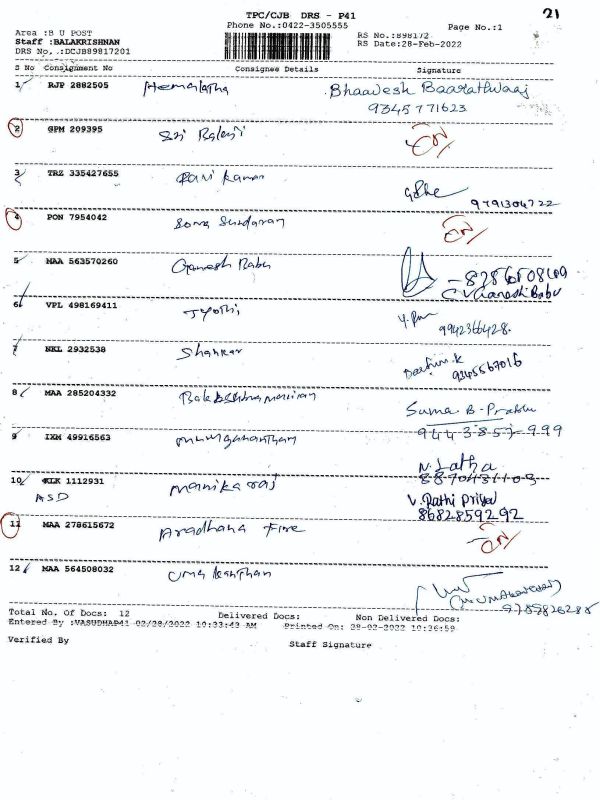 21
TPC/CJB DRS - P41
Phone No.:0422-3505555
Page No.:1
Area :B U POST
Staff :BALAKRISHNAN
DRS No.,:DCJB89817201
RS No.:898172
RS Date:28-Feb-2022
S No Consignment No Consignee Details Signature
1 RJP 2882505 Hemalatha Bhaavesh Baarathwaaj
9345771623
2 GPM 209395 Sri Balaji
3 TRZ 335427655 Ravi Kumar
9791304722
4 PON 7954042 Soma Sundaram
5 MAA 563570260 Ganesh Babu
C.V Ganesh Babu
6 VPL 498169411 Jyothi
9942366428
7 NKL 2932538 Shankar
9345567016
8 MAA 285204332
Suma B. Prabhu
9 IXM 49916563 Murugananthan 944 3857-999
N. Latha
10 KLK 1112931 Manikaraj 8870431103
ASD V. Rathi Priya
8682859292
11 MAA 278615672 Aradhana Fire
12 MAA 564508032 Uma Kanthan
9789826288
Total No. Of Docs: 12 Delivered Docs: Non Delivered Docs:
Entered By :VASUDHAP41 02/28/2022 10:33:43 AM Printed On: 28-02-2022 10:36:59
Verified By Staff Signature